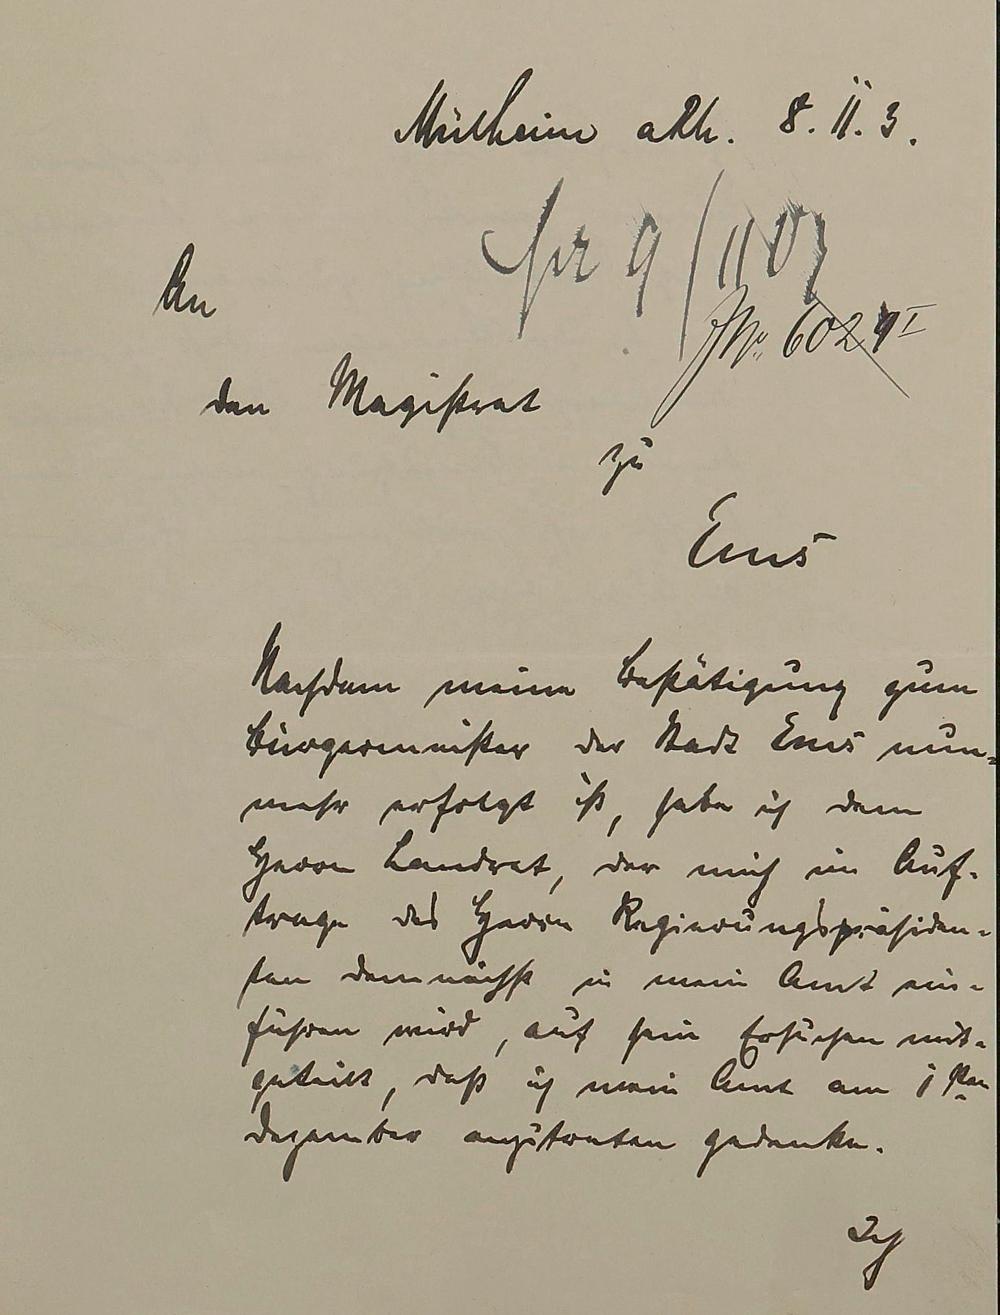 Mülheim a Rh. 8. 11. 3.
pr 9/11 03
An
J. No. 6024 I
den Magistrat
zu
Ems
Nachdem meine Bestätigung zum
Bürgermeister der Stadt Ems nun-
mehr erfolgt ist, habe ich dem
Herrn Landrat, der mich im Auf-
trage des Herrn Regierungspräsiden-
ten demnächst in mein Amt ein-
führen wird, auf sein Ersuchen mit-
geteilt, daß ich mein Amt am 1ten
Dezember anzutreten gedenke.
Ich